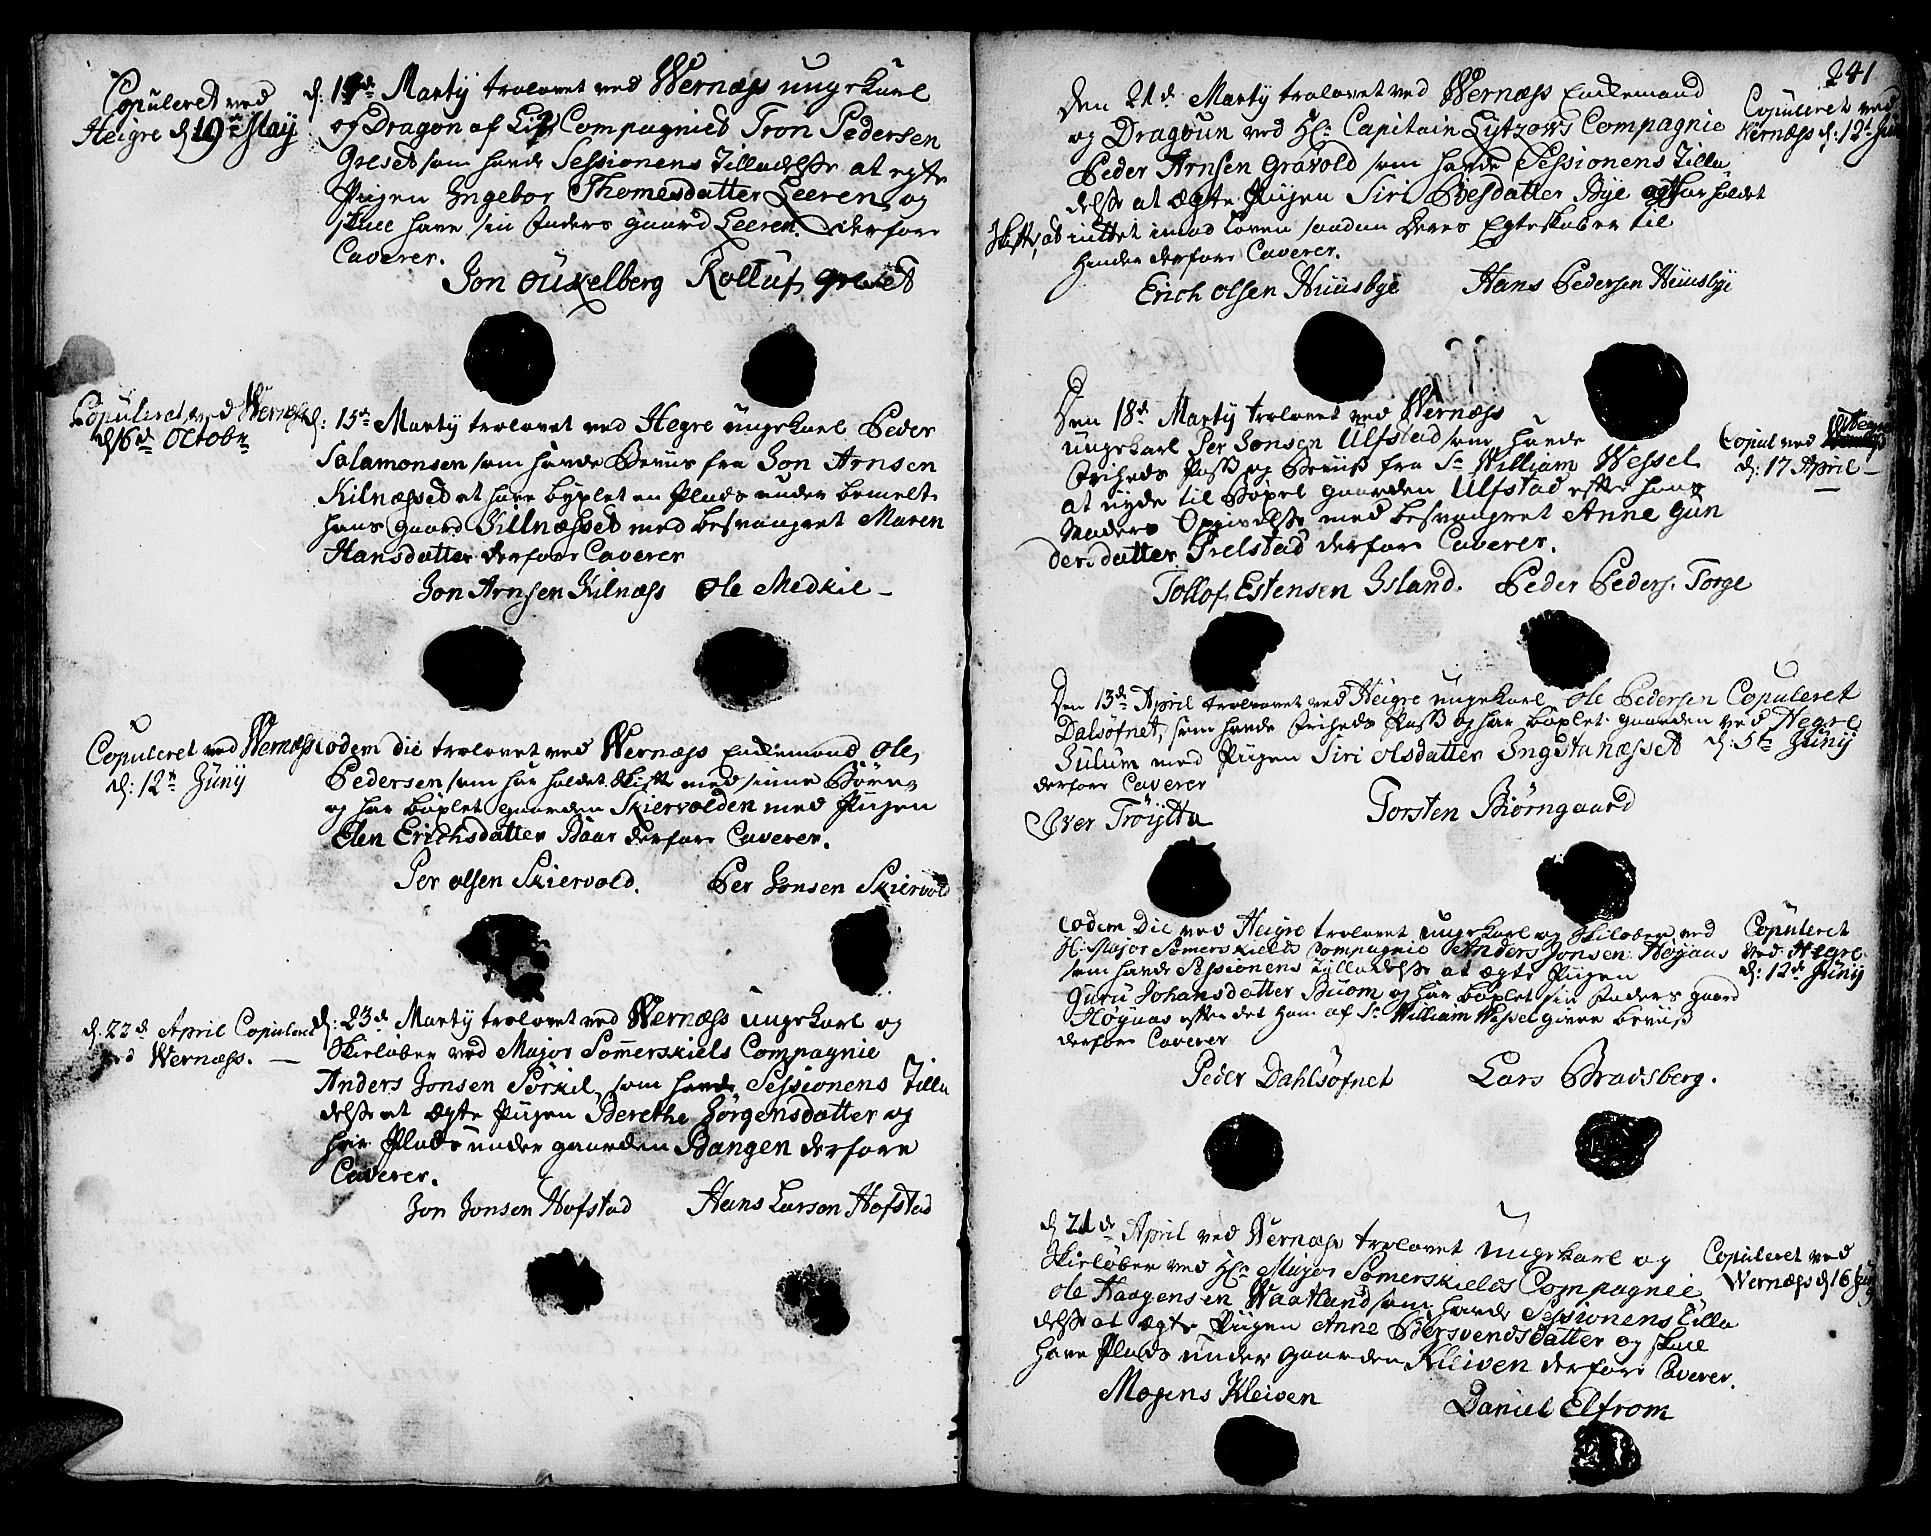 Copuleret ved
Heigre d. 19de May
d: 14de Martij trolovet ved Wernæss ungekarl
og Dragon af Compagniet Tron Pedersen
Greset som hafde Sessionens Tilladelsse at egte
Pigen Ingebor Thomesdatter Leeren, og
skule have sin Faders gaard Leeren. derfore
Caverer.
Jon ouxelberg Rolluf greset
Copuleret ved Wernæss
d. 6de Octobr
d: 15de Martij trolovet ved Hegre ungekarl Peder
Salamonsen som hafde Beviis fra Jon Arnsen
Kilnæsset at have byxlet en Plads under bemelte
hans gaard Killnæsset med besvangret Maren
Hansdatter derfore Caverer
Jon Arnsen Kilnæss Ole Medkil
Copuleret ved Wernæss
d: 12te Junij
Eodem die trolovet ved Wernæss Enkemand Ole
Pedersen som har holdet Skifte med sinne Børn
og har böxlet gaarden Skiervolden med Pigen
Elen Erichsdatter Baar derfore Caverer.
Per olsen Skiervold. Per Jonsen Skiervold
d: 22de April Copuleret
ved Wernæss.
d: 23de Martij trolovet ved Wernæss ungekarl og
Skieløber ved Major Somerskiels Compagnie
Anders Jonsen Sørkil, som hafde Sessionens Tilla
delsse at ægte Pigen Berethe Jörgensdatter og
har Plads under gaarden Bangen derfore
Caverer.
Jon Jonsen Hofstad Hans Larsen Hofstad
241
Den 21de Martij trolovet ved Wernæss Enkemand
og Dragoun ved Hr. Capitain Lytzows Compagnie
Peder Arnsen Gravold som hafde Sessionens Tilla
delsse at Ægte Pigen Siri Boesdatter Bye og har holdet
Skifte, at inttet imod Loven saadan deres Egteskaber til
hinder derfore Caverer.
Erich olsen Huusbye Hans Pedersen Huusbye
Copuleret ved
Wernæss d: 12te
Den 18de Martij trolovet ved Wernæss
ungekarl Per Jonsen Ulfstad som hafde
Friheds Pass og Beviiss fra Sr William Wessel
at nyde til Böxel gaarden Ulfstad efter hans
Faders Opgivelsse med besvangret Anne Gun
dersdatter Sielstad derfore Caverer.
Tollof Estensen Island. Peder Peders. Torge
Copul ved Hegre
d: 17 April
Den 13de April trolovet ved Heigre ungekarl Ole Pedersen
Dalsöfnet, som hafde Friheds Pass og har böxlet gaarden
Julum med Pigen Siri Olsdatter Ingstanæsset
derfore Caverer
Copuleret
ved Hegre
d: 5te Junij
Iver Tröytta Torsten Biörngaard
Eodem Die ved Heigre trolovet ungekarl og Skiløber ved
H: Major Somerskields Compagnie Anders Jonsen Høyaas
som hafde Sessionens Tylladelsse at ægte Pigen
Guru Johansdatter Buom og har böxlet sin Faders gaard
Høyaas efter det ham af Sr William Wessel givne beviiss
derfore Caverer
Copuleret
ved Hegre
d: 12de Junij
Peder Dahlsöfnet Lars Bradsberg.
d: 21de April ved Wernæss trolovet ungekarl og
Skieløber ved Hr Major Somerskields Compagnie
Ole Haagensen Waatland som hafde Sessionens Tilla
delsse at ægte Pigen Anne Bersvendsdatter og skall
have Plads under gaarden Kleiven derfore Caverer.
Copuleret ved
Wernæss d 16
Mogens Kleiven Daniel Elfrom